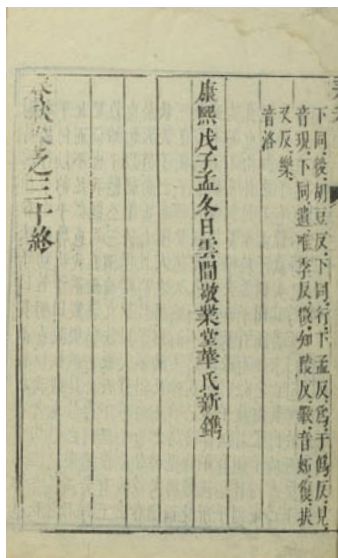 下同後胡豆反下同行下孟反爲于僞反見
音現下同遺唯季反徵知陵反斁音妬復扶
又反樂
音洛
康熙戊子孟冬日雲間敬業堂華氏新鐫
春秋卷之三十終